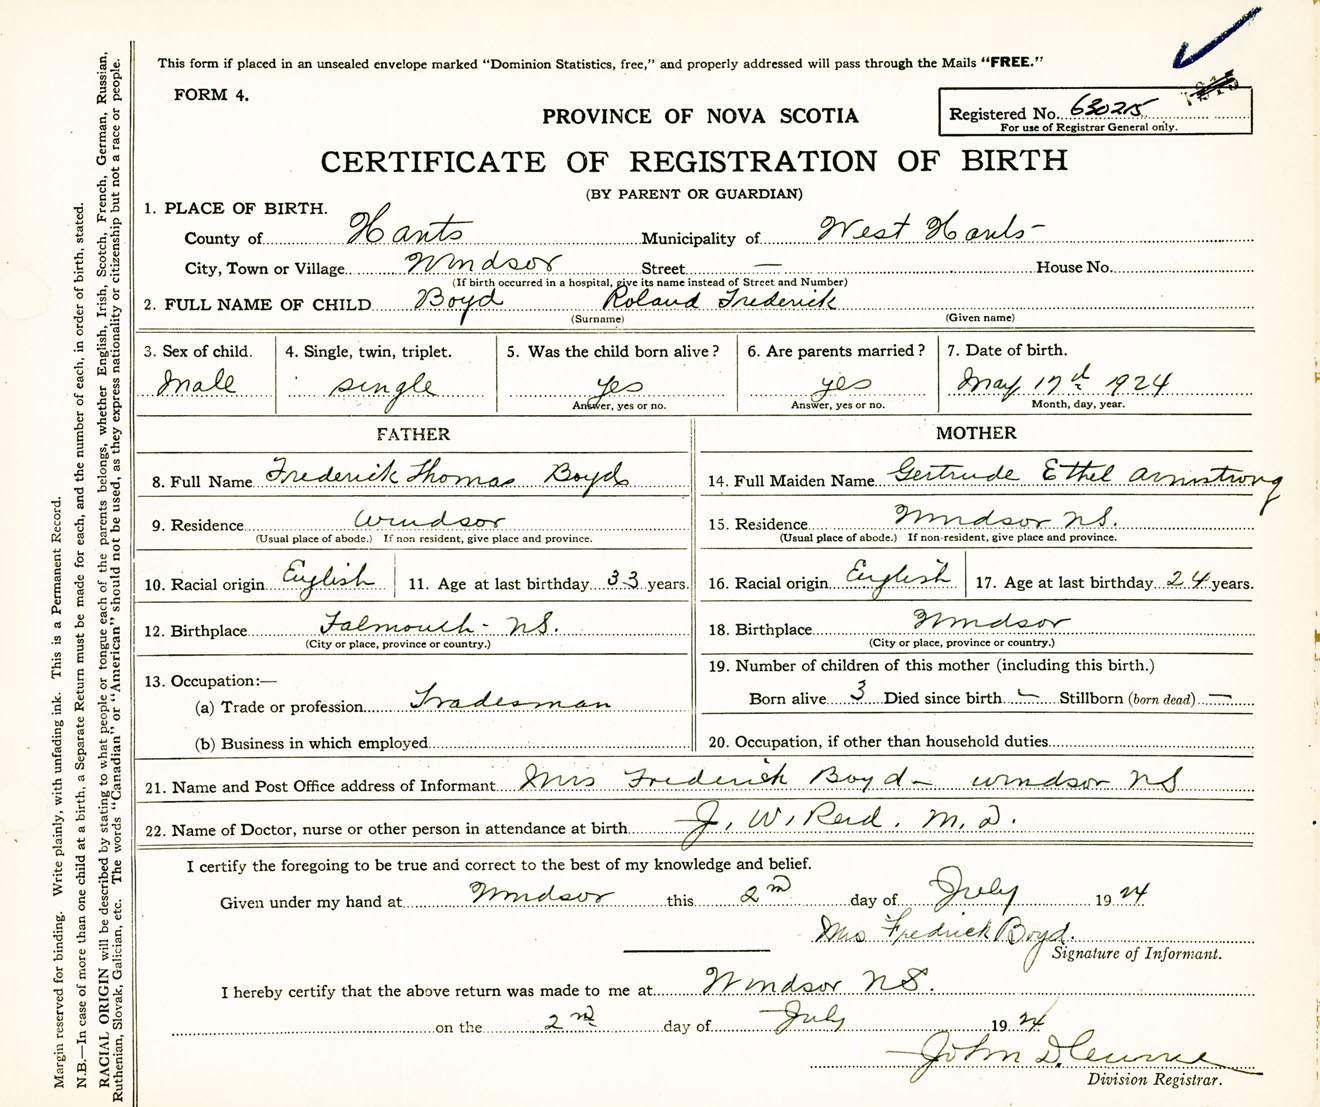 This form if placed in an unsealed envelope marked "Dominion Statistics, free," and properly addressed will pass through the Mails "FREE."
FORM 4.
PROVINCE OF NOVA SCOTIA
Registered No. 630215
For use of Registrar General only.
CERTIFICATE OF REGISTRATION OF BIRTH
(BY PARENT OR GUARDIAN)
1. PLACE OF BIRTH.
County of Hants Municipality of West Hants-
City, Town or Village Windsor Street — House No.
(If birth occurred in a hospital, give its name instead of Street and Number)
2. FULL NAME OF CHILD Boyd Roland Frederick
(Surname) (Given name)
3. Sex of child. 4. Single, twin, triplet. 5. Was the child born alive? 6. Are parents married? 7. Date of birth.
Male single yes yes May 17th 1924
Answer, yes or no. Answer, yes or no. Month, day, year.
FATHER
8. Full Name Frederick Thomas Boyd
9. Residence Windsor
(Usual place of abode.) If non resident, give place and province.
10. Racial origin English 11. Age at last birthday 33 years.
12. Birthplace Falmouth- NS.
(City or place, province or country.)
13. Occupation:—
(a) Trade or profession Tradesman
(b) Business in which employed
MOTHER
14. Full Maiden Name Gertrude Ethel Armstrong
15. Residence Windsor NS.
(Usual place of abode.) If non-resident, give place and province.
16. Racial origin English 17. Age at last birthday 24 years.
18. Birthplace Windsor
(City or place, province or country.)
19. Number of children of this mother (including this birth.)
Born alive 3 Died since birth — Stillborn (born dead) —
20. Occupation, if other than household duties
21. Name and Post Office address of Informant Mrs Frederick Boyd- Windsor NS
22. Name of Doctor, nurse or other person in attendance at birth J. W. Reid. M.D.
I certify the foregoing to be true and correct to the best of my knowledge and belief.
Given under my hand at Windsor this 2nd day of July 1924
Mrs Fredrick Boyd.
Signature of Informant.
I hereby certify that the above return was made to me at Windsor NS.
on the 2nd day of July 1924
John D.
Division Registrar.
Margin reserved for binding. Write plainly, with unfading ink. This is a Permanent Record.
N.B.—In case of more than one child at a birth, a Separate Return must be made for each, and the number of each, in order of birth, stated.
RACIAL ORIGIN will be described by stating to what people or tongue each of the parents belongs, whether English, Irish, Scotch, French, German, Russian,
Ruthenian, Slovak, Galician, etc. The words "Canadian" or "American" should not be used, as they express nationality or citizenship but not a race or people.